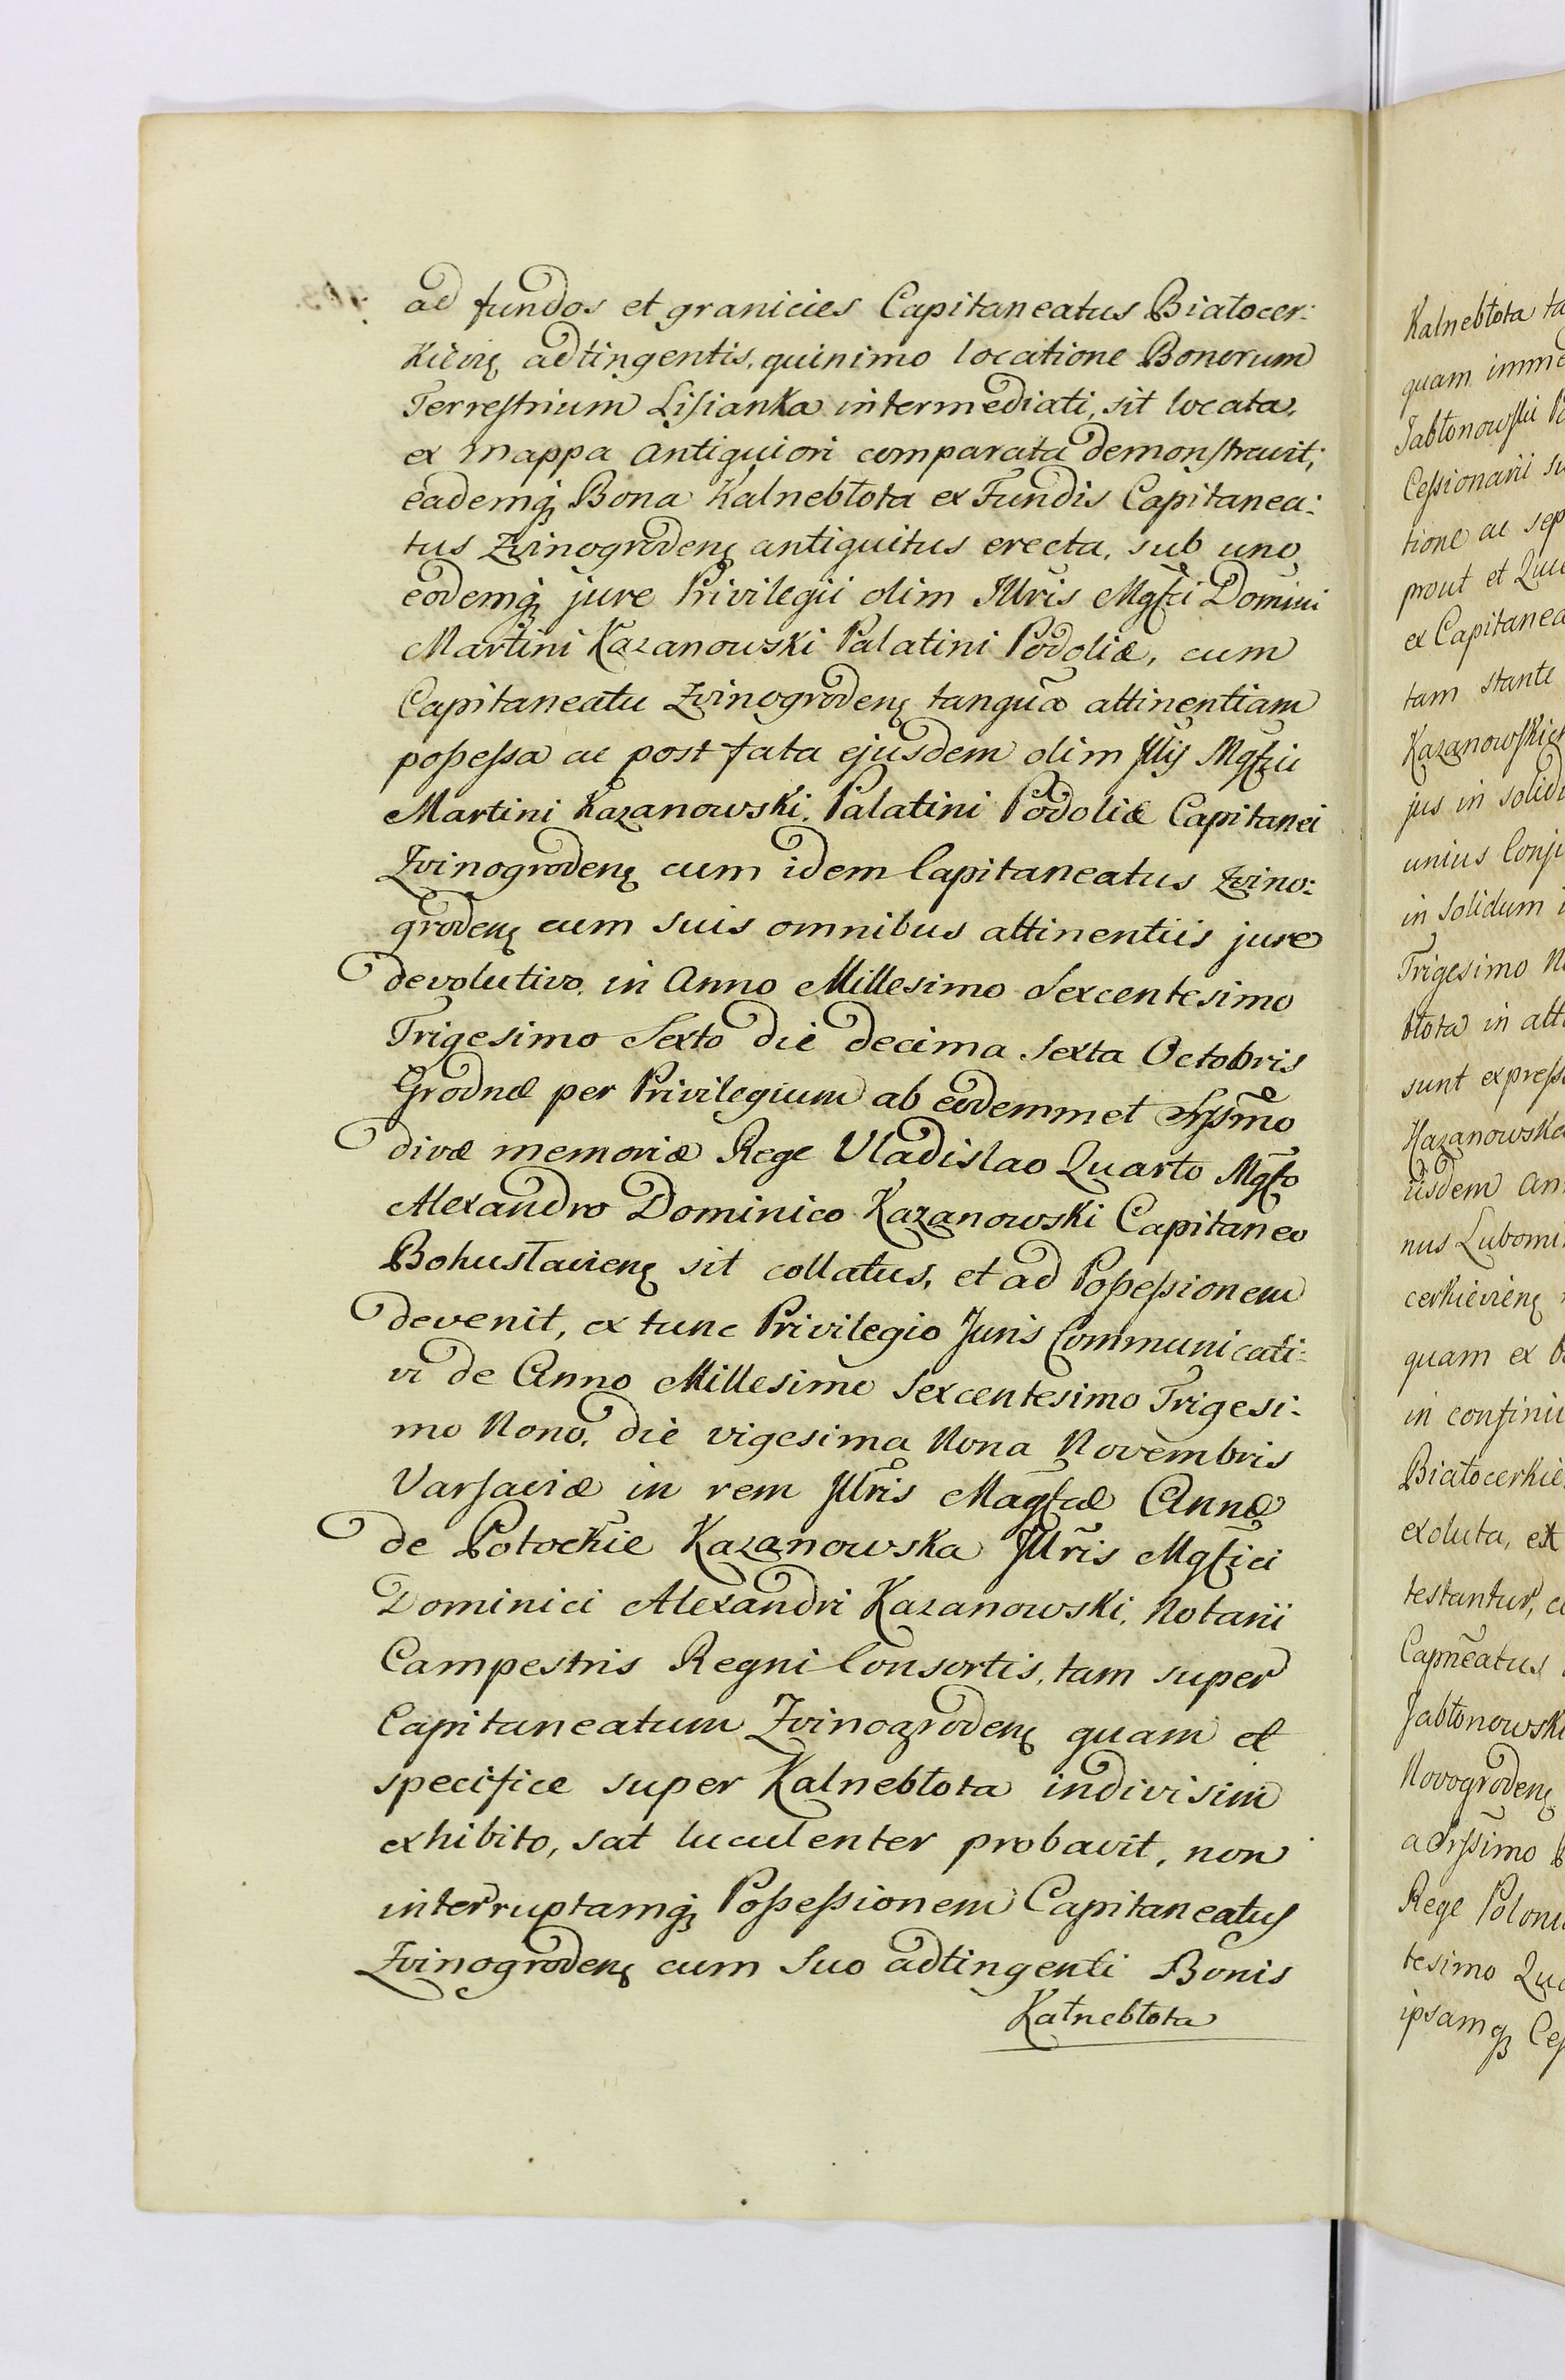 ad fundos et granicies Capitaneatus Białocer:
kievieņ adtingentis, quinimo locatione Bonorum
Terrestrium Lisianka intermediati, sit locata,
ex mappa antiquiori comparata demonstravit;
eademq; Bona Kalnebłota ex Fundis Capitanea:
tus Zvinogrodeń antiquitus erecta, sub uno
eodemq; jure Privilegii olim Illris Mgfci Domini
Martini Kazanowski Palatini Podoliæ, cum
Capitaneatu Zvinogrodeń tanquā attinentiam
possessa ac post fata ejusdem olim Illis Mgfici
Martini Kazanowski, Palatini Podoliæ Capitanei
Zvinogrodeń cum idem Capitaneatus Zvino:
grodeń cum suis omnibus attinentiis jure
devolutivo, in Anno Millesimo Sexcentesimo
Trigesimo Sexto die decima sexta Octobris
Grodnæ per Privilegium ab eodemmet Srssmo
divæ memoriæ Rege Vladislao Quarto Mgfco
Alexandro Dominico Kazanowski Capitaneo
Bohuslavień sit collatus, et ad Possessionem
devenit, ex tunc Privilegio Juris Communicati:
vi de Anno Millesimo Sexcentesimo Trigesi:
mo Nono, die vigesima Nona Novembris
Varsaviæ in rem Illris Magfcæ Annæ
de Potockie Kazanowska Illris Mgfici
Dominici Alexandri Kazanowski, Notarii
Campestris Regni Consortis, tam super
Capitaneatum Zvinogrodeń quam et
specifice super Kalnebłota indivisim
exhibito, sat luculenter probavit, non
interruptamq; Possessionem Capitaneatus
Zvinogrodeń cum suo adtingenti Bonis
Kałnebłota
Kalnebłota ta
quam imme
Jabłonowski Pa
Cessionarii su
tione ac sep
prout et Qui
ex Capitanea
tam stante
Kazanowskich
jus in solid
unius Conju
in solidum i
Trigesimo N
błota in atti
sunt express
Kazanowske
iisdem An
nus Lubomi
cerkievień
quam ex b
in confinii
Białocerkie
exoluta, ext
testantur, c
Capneatus
Jabłonowski
Novogrodeń
a Srssimo
Rege Poloni
tesimo Qua
ipsamq; Ces